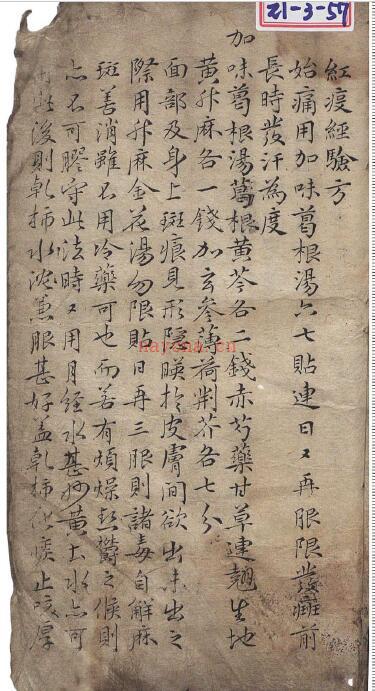 21-3-57
紅疫經驗方
始痛用加味葛根湯六七貼連日又再服限發癍前
長時發汗為度
加味葛根湯葛根黃芩各二錢赤芍藥甘草連翹生地
黃升麻各一錢加玄參薄荷荆芥各七分
面部及身上斑痕見形隱暎扵皮膚間欲出未出之
際用升麻金花湯勿限貼日再三服則諸毒自解麻
斑善消雖不用冷藥可也而善有煩燥欝之候則
亦不可膠守此法時又用月經水甚妙黃土水亦可
後則乾柿水沈兼服甚好盖乾柿痰止咳厚
hayona.cn